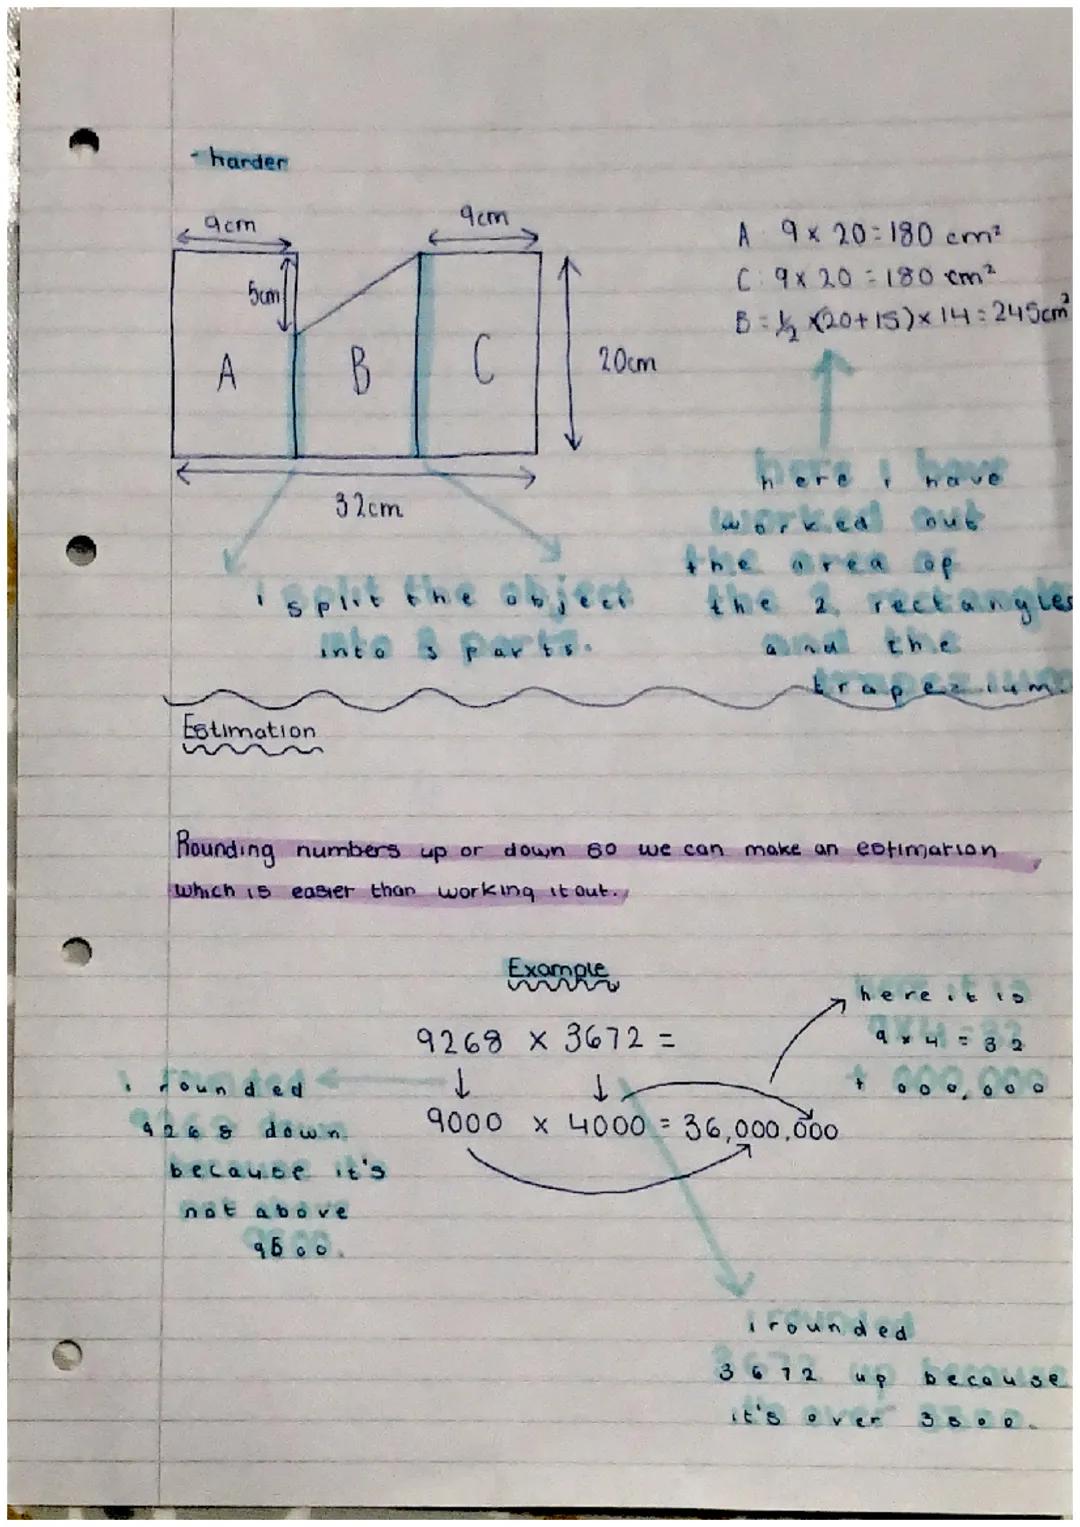 - harder
9cm
9cm
5cm
A
B
C
20cm
32cm
A 9 x 20 = 180 cm²
C: 9 x 20 = 180 cm²
B = ½ x(20+15) x 14 = 245cm²
here i have
worked out
the area of
the 2 rectangles
and the
trapezium.
i split the object
into 3 parts.
Estimation
Rounding numbers up or down so we can make an estimation
which is easier than working it out.
Example
9268 x 3672 =
9000 x 4000 = 36,000,000
here it is
9 x 4 = 32
+ 000,000
i rounded
9268 down
because it's
not above
9500.
i rounded
3672 up because
it's over 3500.